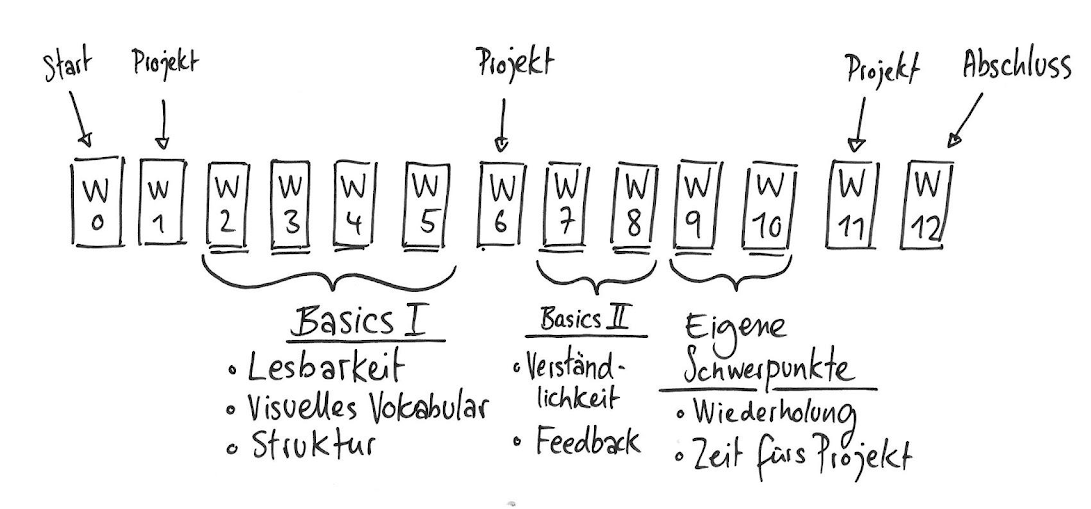 Start Projekt Projekt Projekt Abschluss
W W W W W W W W W W W W W
0 1 2 3 4 5 6 7 8 9 10 11 12
Basics I
• Lesbarkeit
• Visuelles Vokabular
• Struktur
Basics II
• Verständ-
lichkeit
• Feedback
Eigene
Schwerpunkte
• Wiederholung
• Zeit fürs Projekt